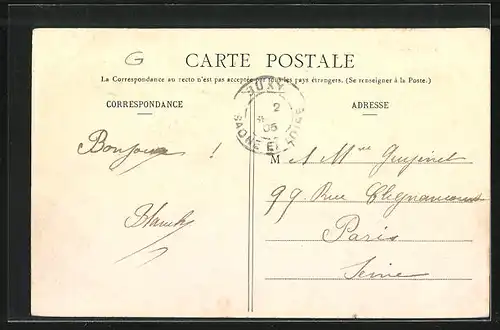 G
CARTE POSTALE
La Correspondance au recto n'est pas acceptée par tous les pays étrangers. (Se renseigner à la Poste.)
BUXY
2
05
SAONE ET LOIRE
CORRESPONDANCE
ADRESSE
Bonjour !
Blanche
M A Mme
99 Rue Clignancourt
Paris
Seine